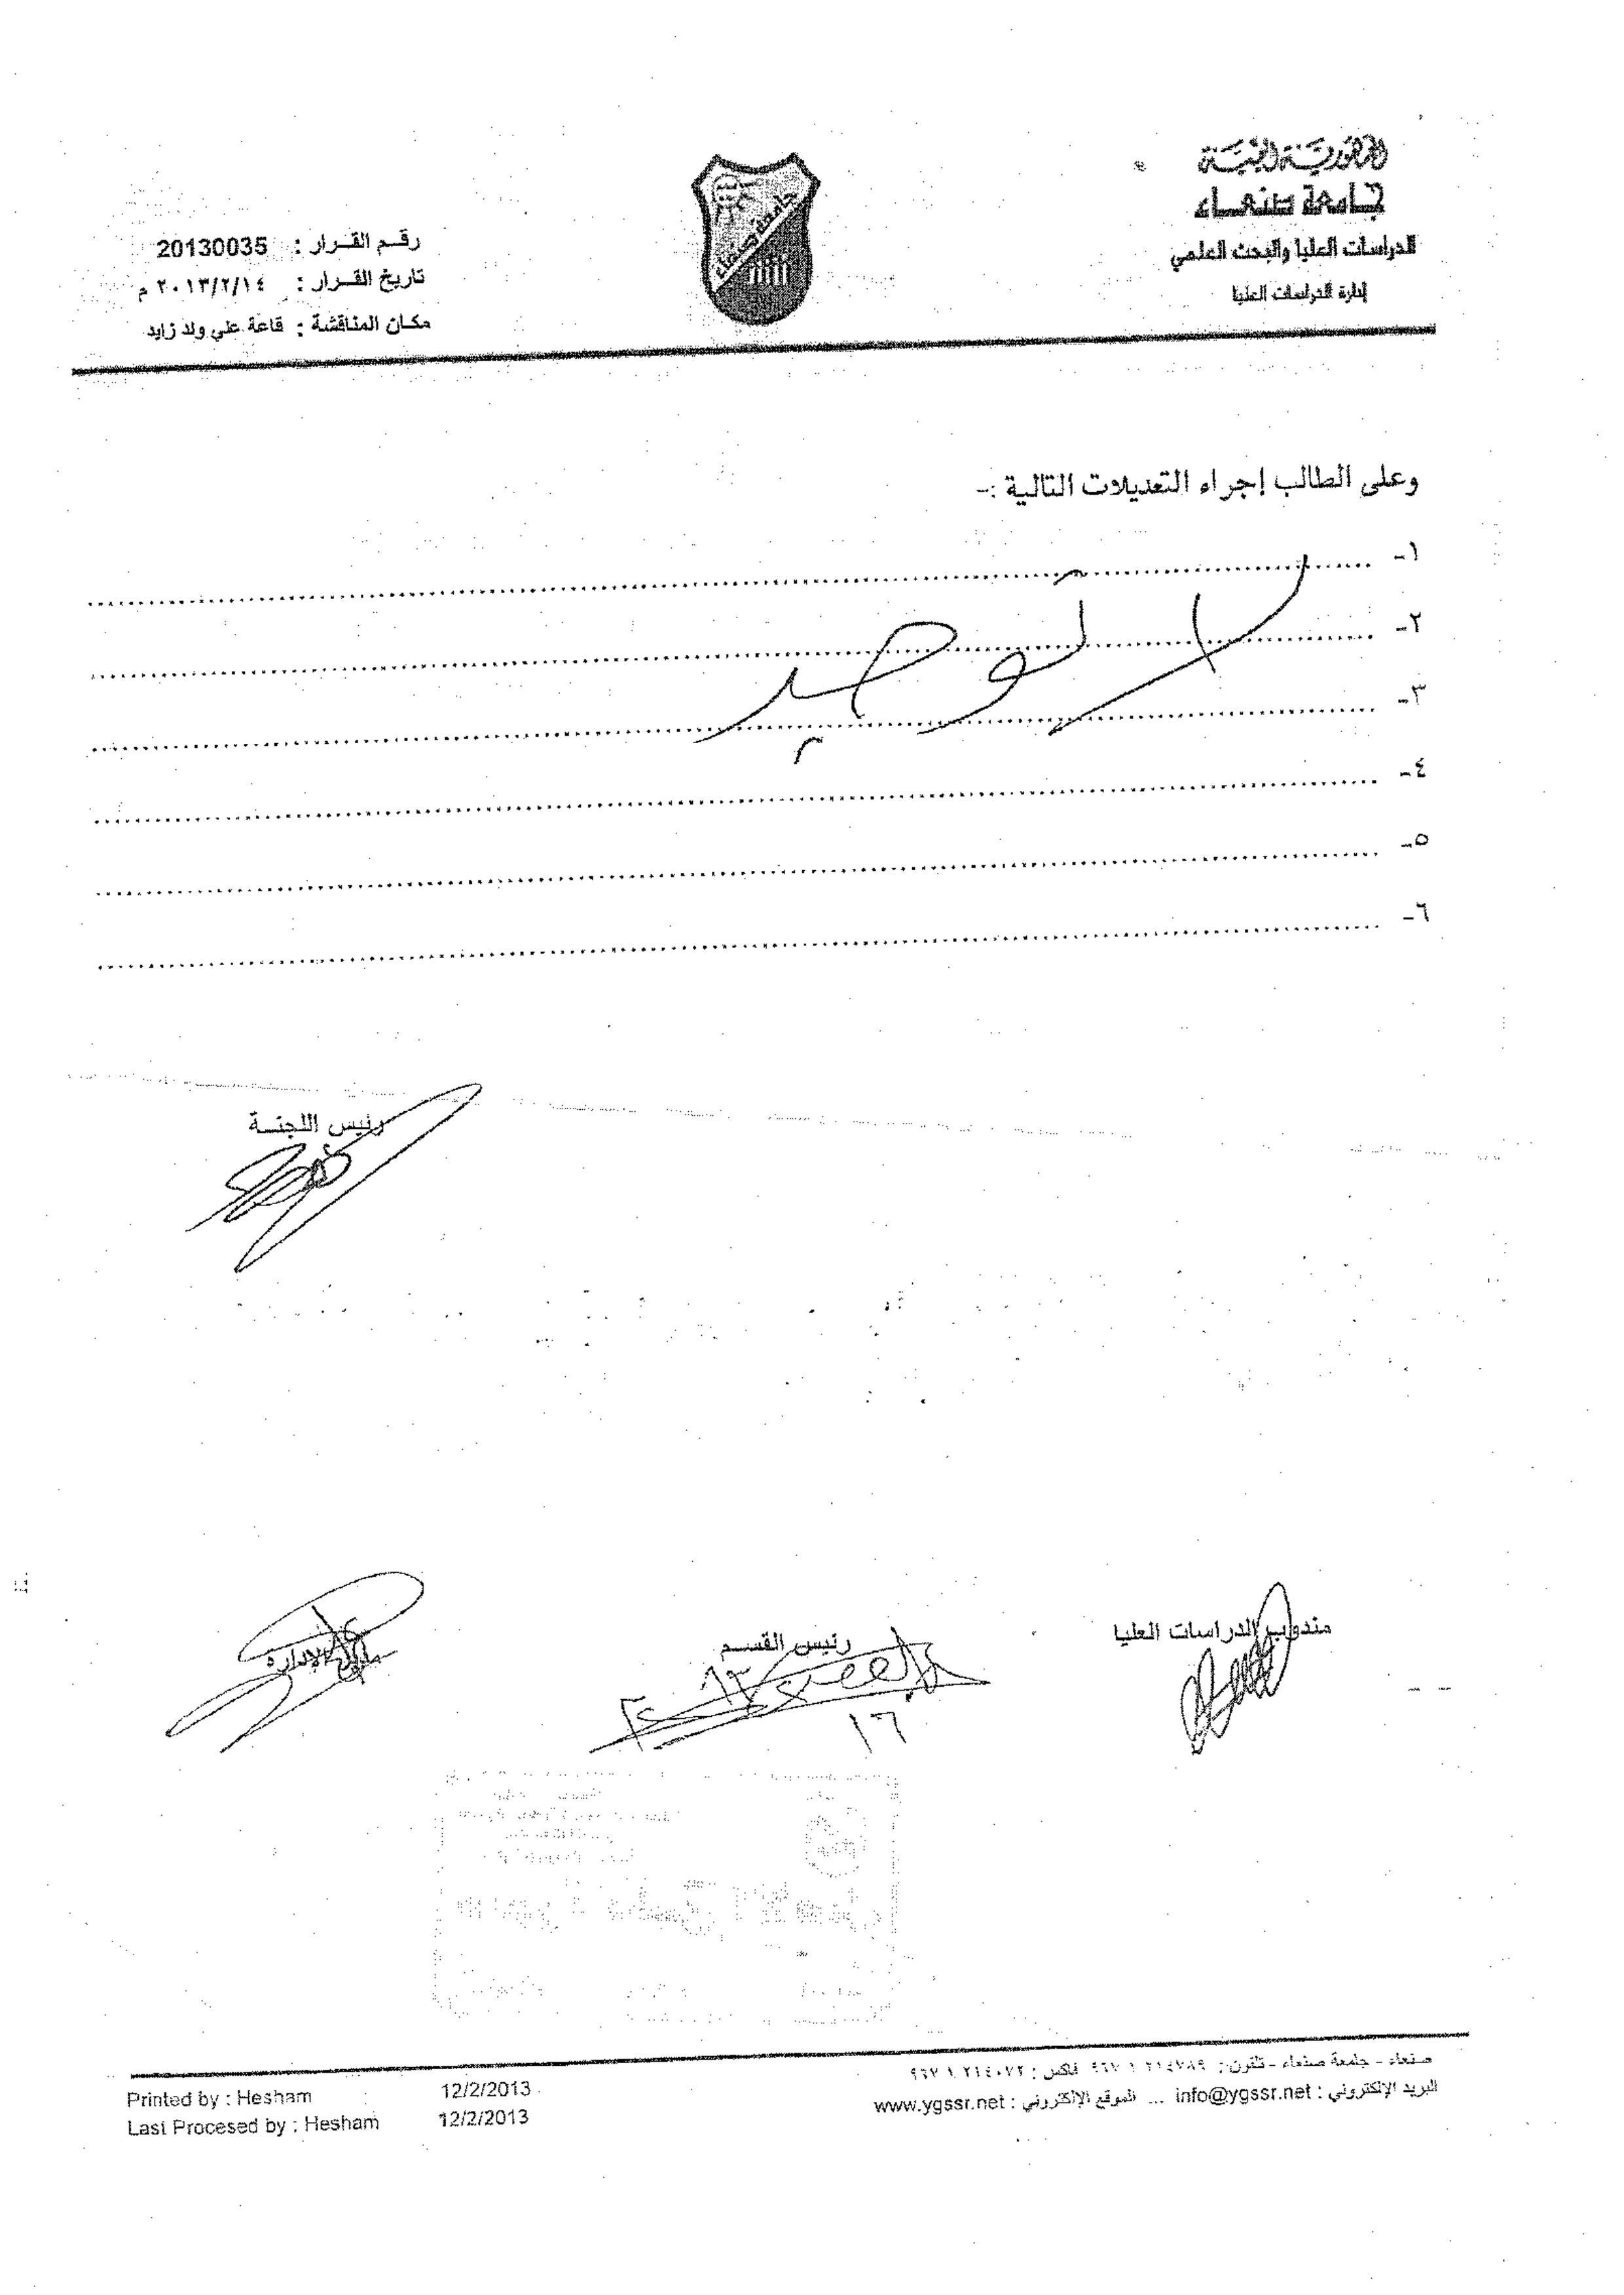 الجمهورية اليمنية
جامعة صنعاء
الدراسات العليا والبحث العلمي
إدارة الدراسات العليا
جامعة صنعاء
رقم القرار : 20130035
تاريخ القرار : ٢٠١٣/٢/١٤ م
مكان المناقشة : قاعة علي ولد زايد
وعلى الطالب إجراء التعديلات التالية :-
١-
٢-
٣-
لا يوجد
٤-
٥-
٦-
رئيس اللجنة
مندوب الدراسات العليا
رئيس القسم
مدير الإدارة
١٦
صنعاء - جامعة صنعاء - تلفون : ٩٦٧ ١ ٢١٤٧٨٩ فاكس : ٩٦٧ ١ ٢١٤٠٧٢
البريد الإلكتروني : info@ygssr.net ... الموقع الإلكتروني : www.ygssr.net
Printed by : Hesham 12/2/2013
Last Procesed by : Hesham 12/2/2013